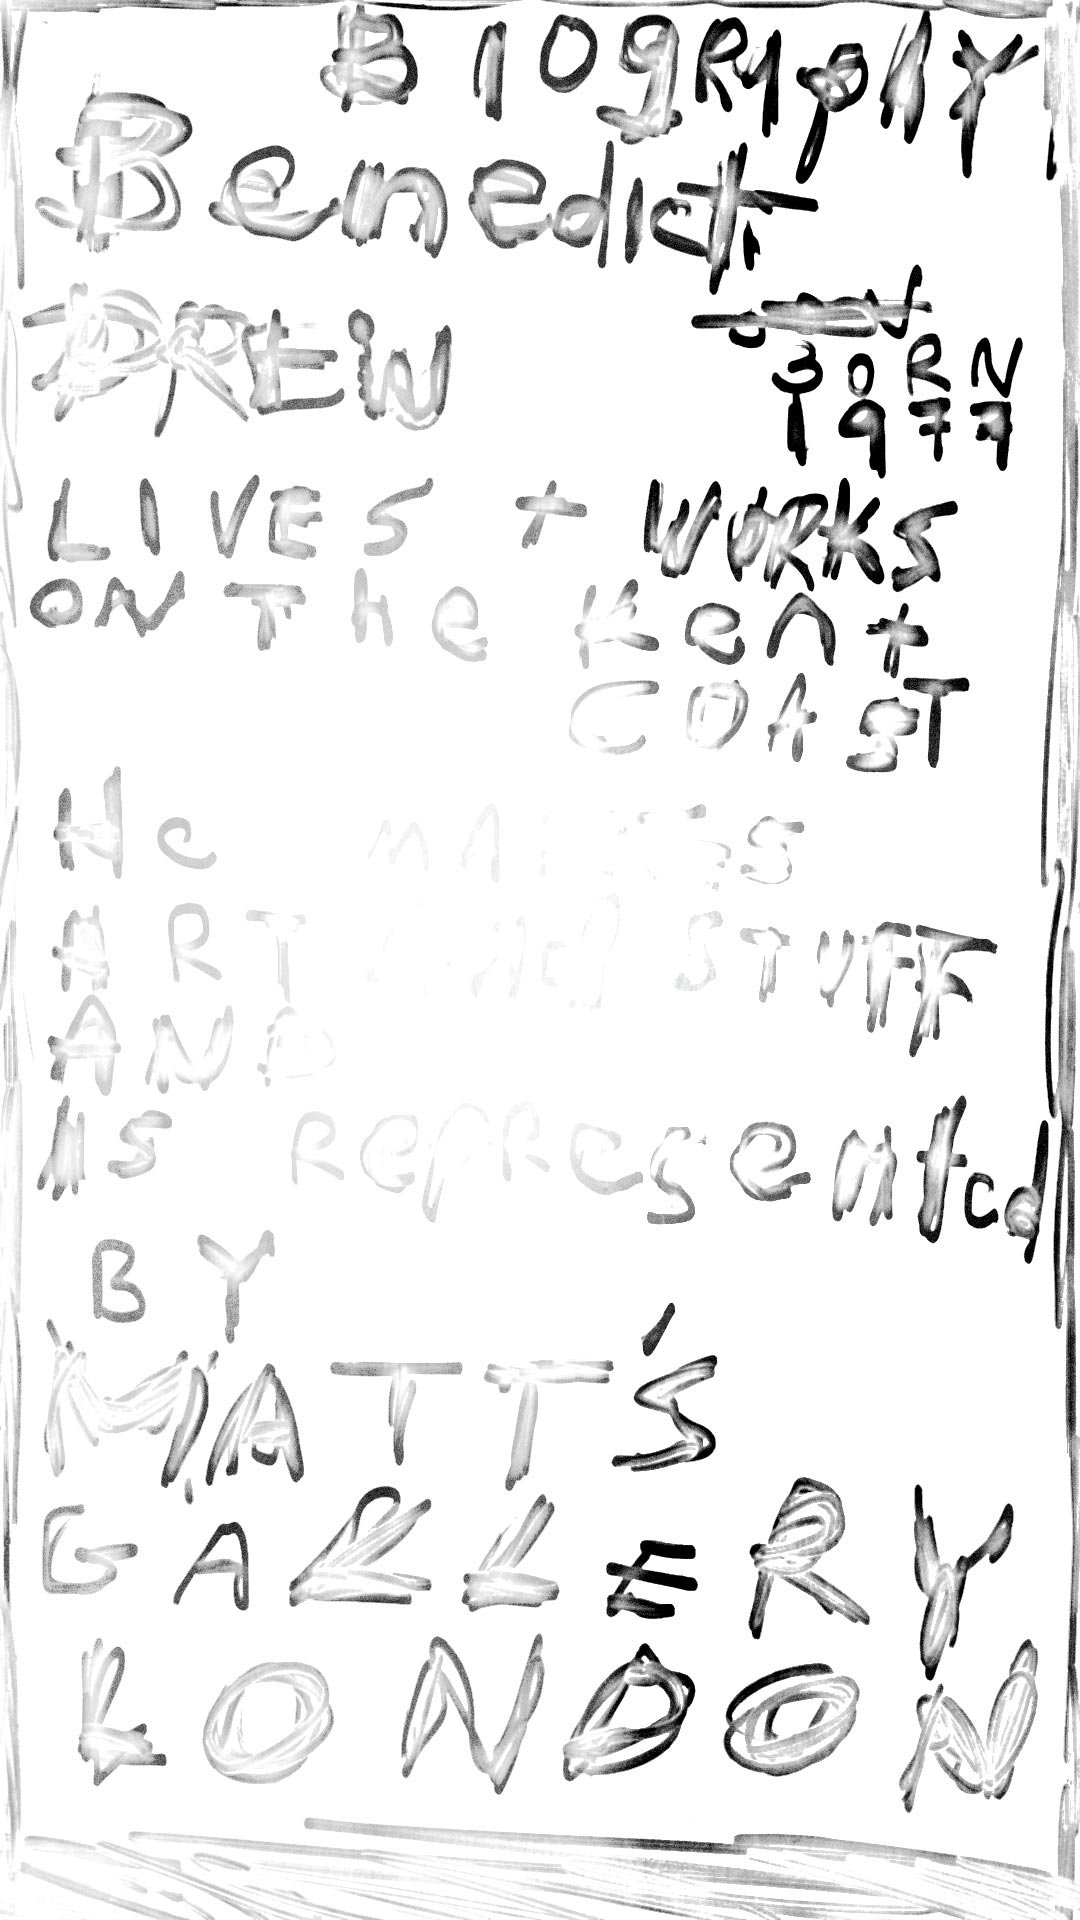 BIOgRaphY
Benedict
DREW
BORN
1977
LIVES + WORKS
ON The KenT
COAST
He MAKES
ART and STUFF
AND
IS RepResented
BY
MATT'S
GALLERY
LONDON